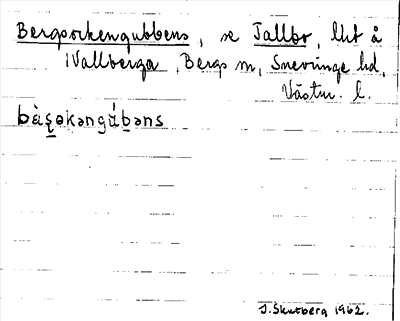 Bergsockengubbens, se Tallbo, lht å
Vallberga, Bergs sn, Snevringe hd,
Västm. l.
bæ̀ṣəkəngú̀bəns
J. Skutberg 1962.